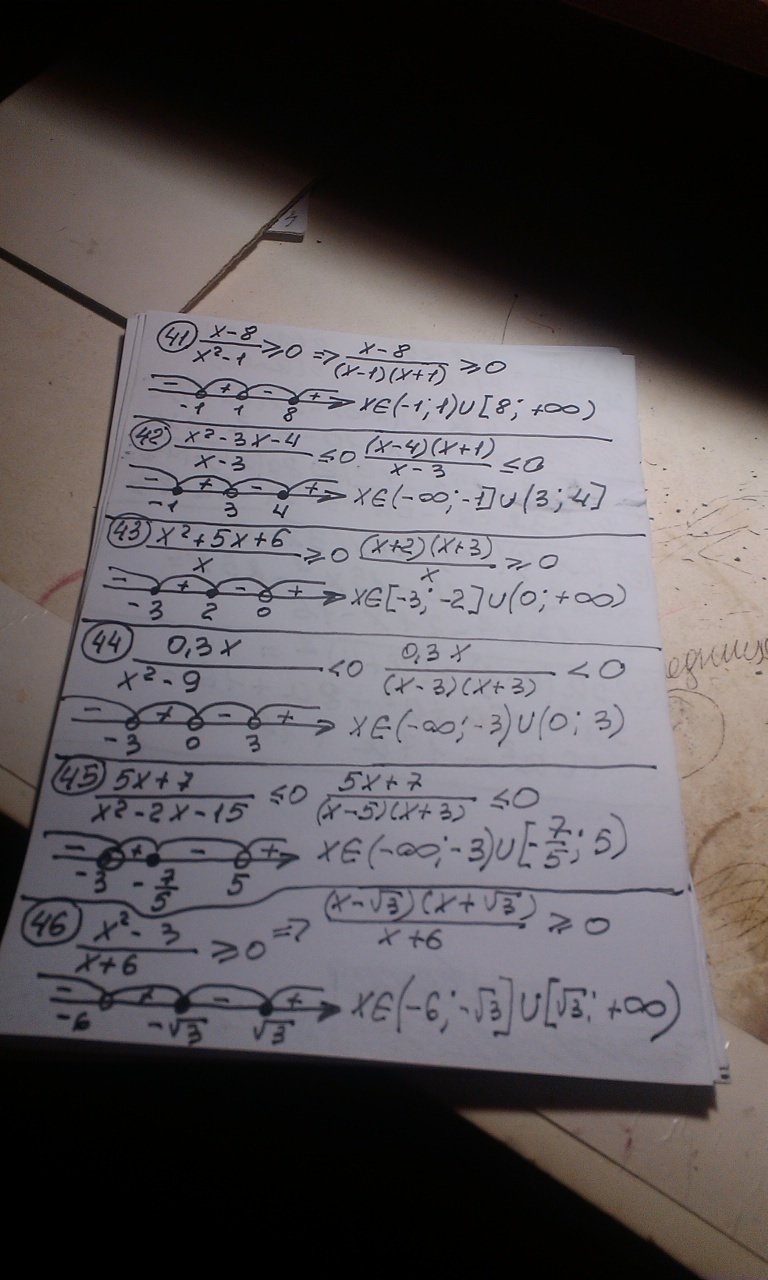 41 (x-8)/(x²-1) ≥ 0 => (x-8)/((x-1)(x+1)) ≥ 0
- + - +
-1 1 8 x∈(-1; 1)∪[8; +∞)
42 (x²-3x-4)/(x-3) ≤ 0 ((x-4)(x+1))/(x-3) ≤ 0
- + - +
-1 3 4 x∈(-∞; -1]∪(3; 4]
43 (x²+5x+6)/x ≥ 0 ((x+2)(x+3))/x ≥ 0
- + - +
-3 2 0 x∈[-3; -2]∪(0; +∞)
44 0,3x/(x²-9) < 0 0,3x/((x-3)(x+3)) < 0
- + - +
-3 0 3 x∈(-∞; -3)∪(0; 3)
45 (5x+7)/(x²-2x-15) ≤ 0 (5x+7)/((x-5)(x+3)) ≤ 0
- + - +
-3 -7/5 5 x∈(-∞; -3)∪[-7/5; 5)
46 (x²-3)/(x+6) ≥ 0 => ((x-√3)(x+√3))/(x+6) ≥ 0
- + - +
-6 -√3 √3 x∈(-6; -√3]∪[√3; +∞)